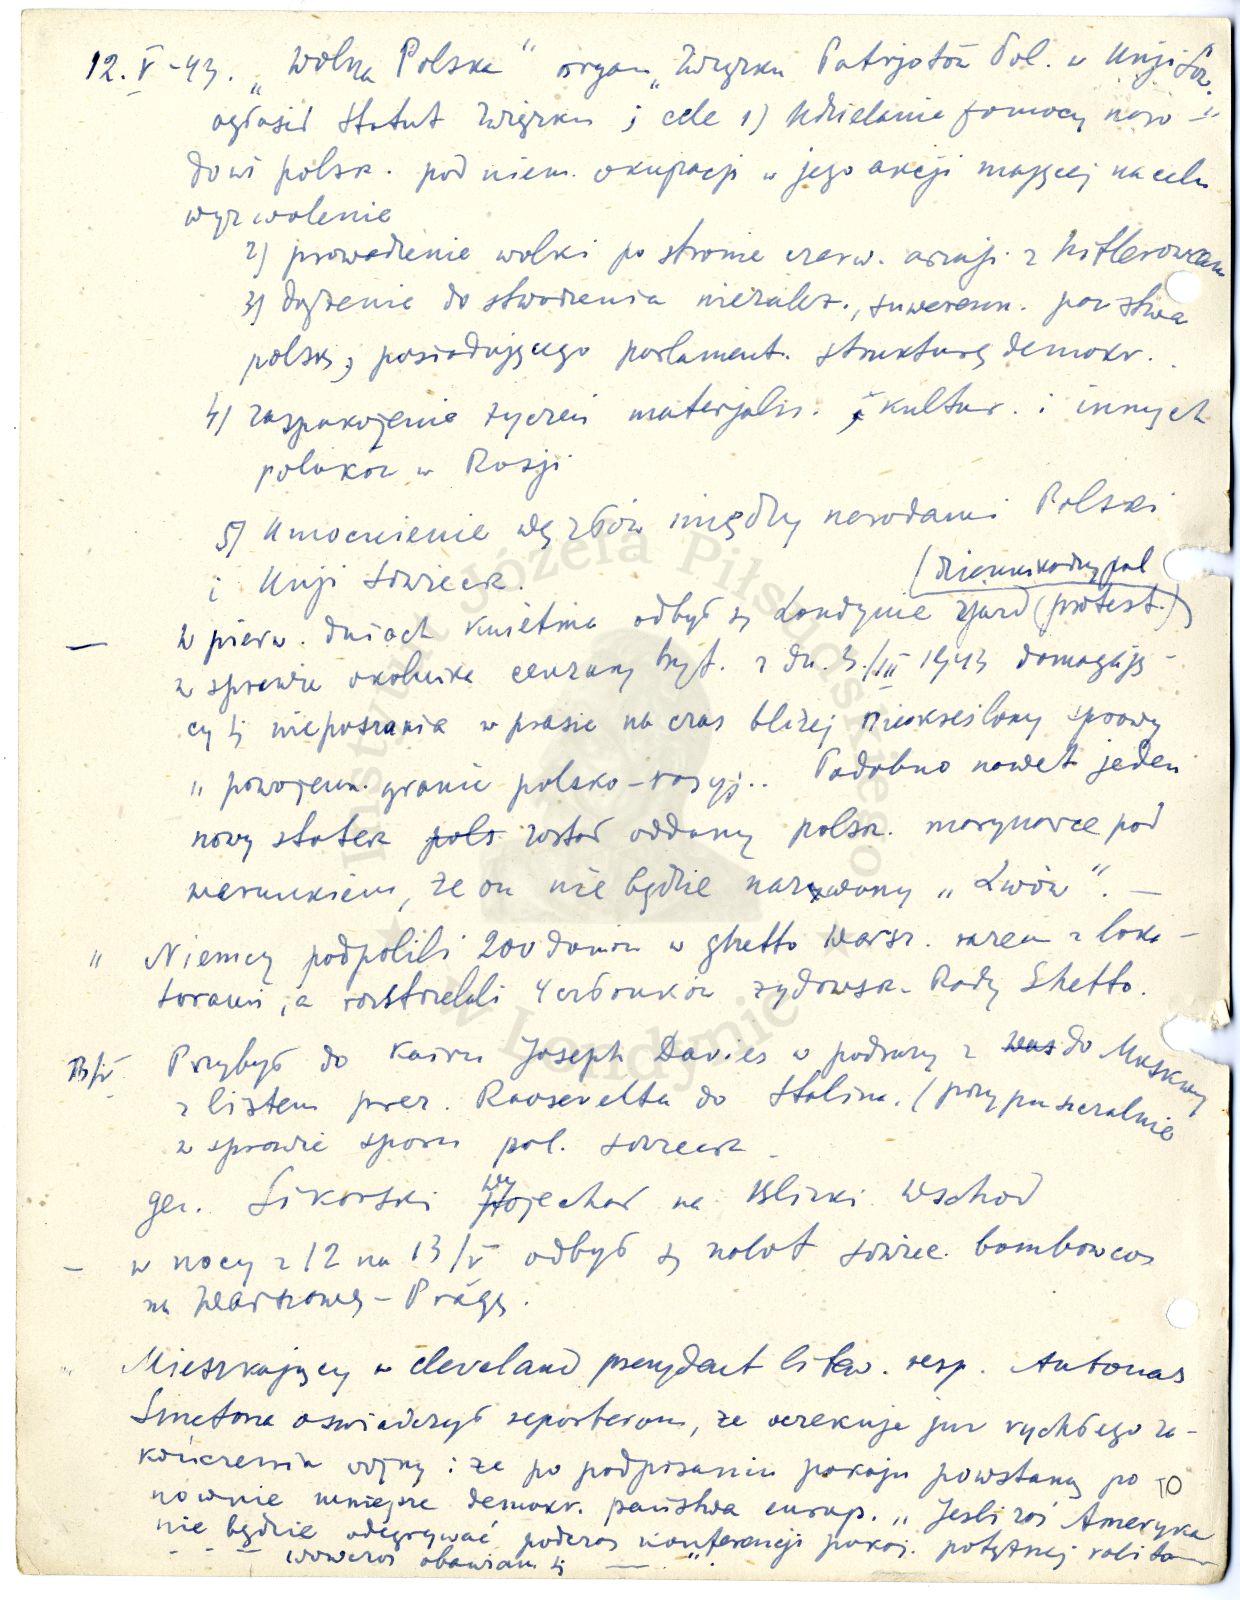 12. V - 43. „Wolna Polska" organ „Związku Patrjotów Pol. w Unji Sow.
ogłosił statut Związku i cele 1) Udzielanie pomocy naro-
dowi polsk. pod niem. okupacji w jego akcji mającej na celu
wyzwolenie
2) prowadzenie walki po stronie czerw. armji z Hitlerowcami
3) dążenie do stworzenia niezależ., suweren. państwa
polsk., posiadającego parlament. strukturę demokr.
4) zaspakojenie życzeń materjaln. i kultur. i innych
polaków w Rosji
5) Umocnienie węzłów między narodami Polski
i Unji Sowieck.
(dziennikarzy pol
— W pierw. dniach kwietnia odbył się Londynie zjazd (protest.)
w sprawie okólnika cenzury bryt. z dn. 3/III 1943 domagają-
cy się nieporszania w prasie na czas bliżej nieokreślony sprawy
„powojenn. granic polsko-rosyj.. Podobno nawet jeden
nowy statek pols został oddany polsk. marynarce pod
warunkiem, że on nie będzie nazwany „Lwów". —
" Niemcy podpolili 200 domów w ghetto warsz. razem z loka-
torami, a rozstrzelali 4 członków żydowsk. Rady Ghetto.
13/V Przybył do Kairu Joseph Davies w podróży z was do Moskwy
z listem prez. Roosevelta do Stalina. (przypuszczalnie
w sprawie sporu pol. sowieck.
gen. Sikorski wyjechał na Bliski Wschód
— w nocy z 12 na 13/V odbył się nalot sowiec. bombowców
na Warszawę - Pragę.
" Mieszkający w Cleveland prezydent litew. resp. Antonas
Smetona oswiadczył reporterom, że oczekuje już rychłego za-
kończenia wojny i że po podpisaniu pokoju powstaną po
nownie mniejsze demokr. państwa europ. „Jeśli zaś Ameryka
nie będzie odegrywać podczas konferencji pokoj. potężnej roli to
wówczas obawiam się — ".
70
Instytut Józefa Piłsudskiego
w Londynie